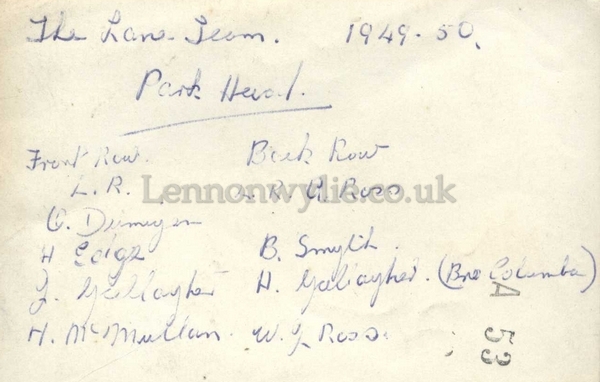 The Lane Team. 1949-50.
Park Head.
Front Row. Back Row
L.R. L.R. G. Ross
Lennonwylie.co.uk
H Edge B. Smyth.
J. Gallagher H. Gallagher. (Bro Columba)
H. McMullan. W. J. Ross.
A 53